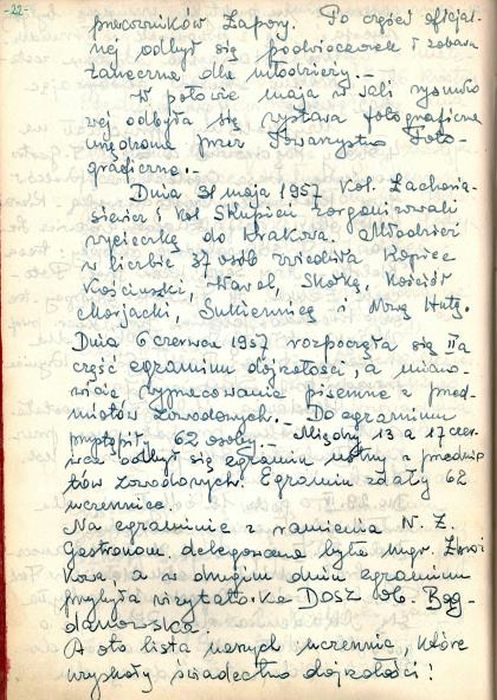 -22-
pracowników Zapory. Po części oficjal-
nej odbył się podwieczorek i zabawa
taneczna dla młodzieży.-
W połowie maja w sali rysunko
wej odbyła się wystawa fotograficzna
urządzona przez Towarzystwo Foto-
graficzne.-
Dnia 31 maja 1957 Kol. Zacharia-
siewicz i Kol Skupień zorganizowali
wycieczkę do Krakowa. Młodzież
w liczbie 37 osób zwiedziła Kopiec
Kościuszki, Wawel, Skałkę, Kościół
Marjacki, Sukiennice i Nową Hutę.
Dnia 6 czerwca 1957 rozpoczęła się IIa
część egzaminu dojrzałości, a miano-
wicie wypracowania pisemne z przed-
miotów zawodowych.- Do egzaminu
przystąpiły 62 osoby.- Między 13 a 17 czer-
wca odbył się egzamin ustny z przedmio
tów zawodowych. Egzamin zdały 62
uczennice.
Na egzaminie z ramienia N. Z.
Gastronom. delegowana była mgr.
kowa, a w drugim dniu egzaminu
przybyła wizytatorka DOSZ ob. Bog-
danowska
A oto lista naszych uczennic, które
uzyskały świadectwo dojrzałości!